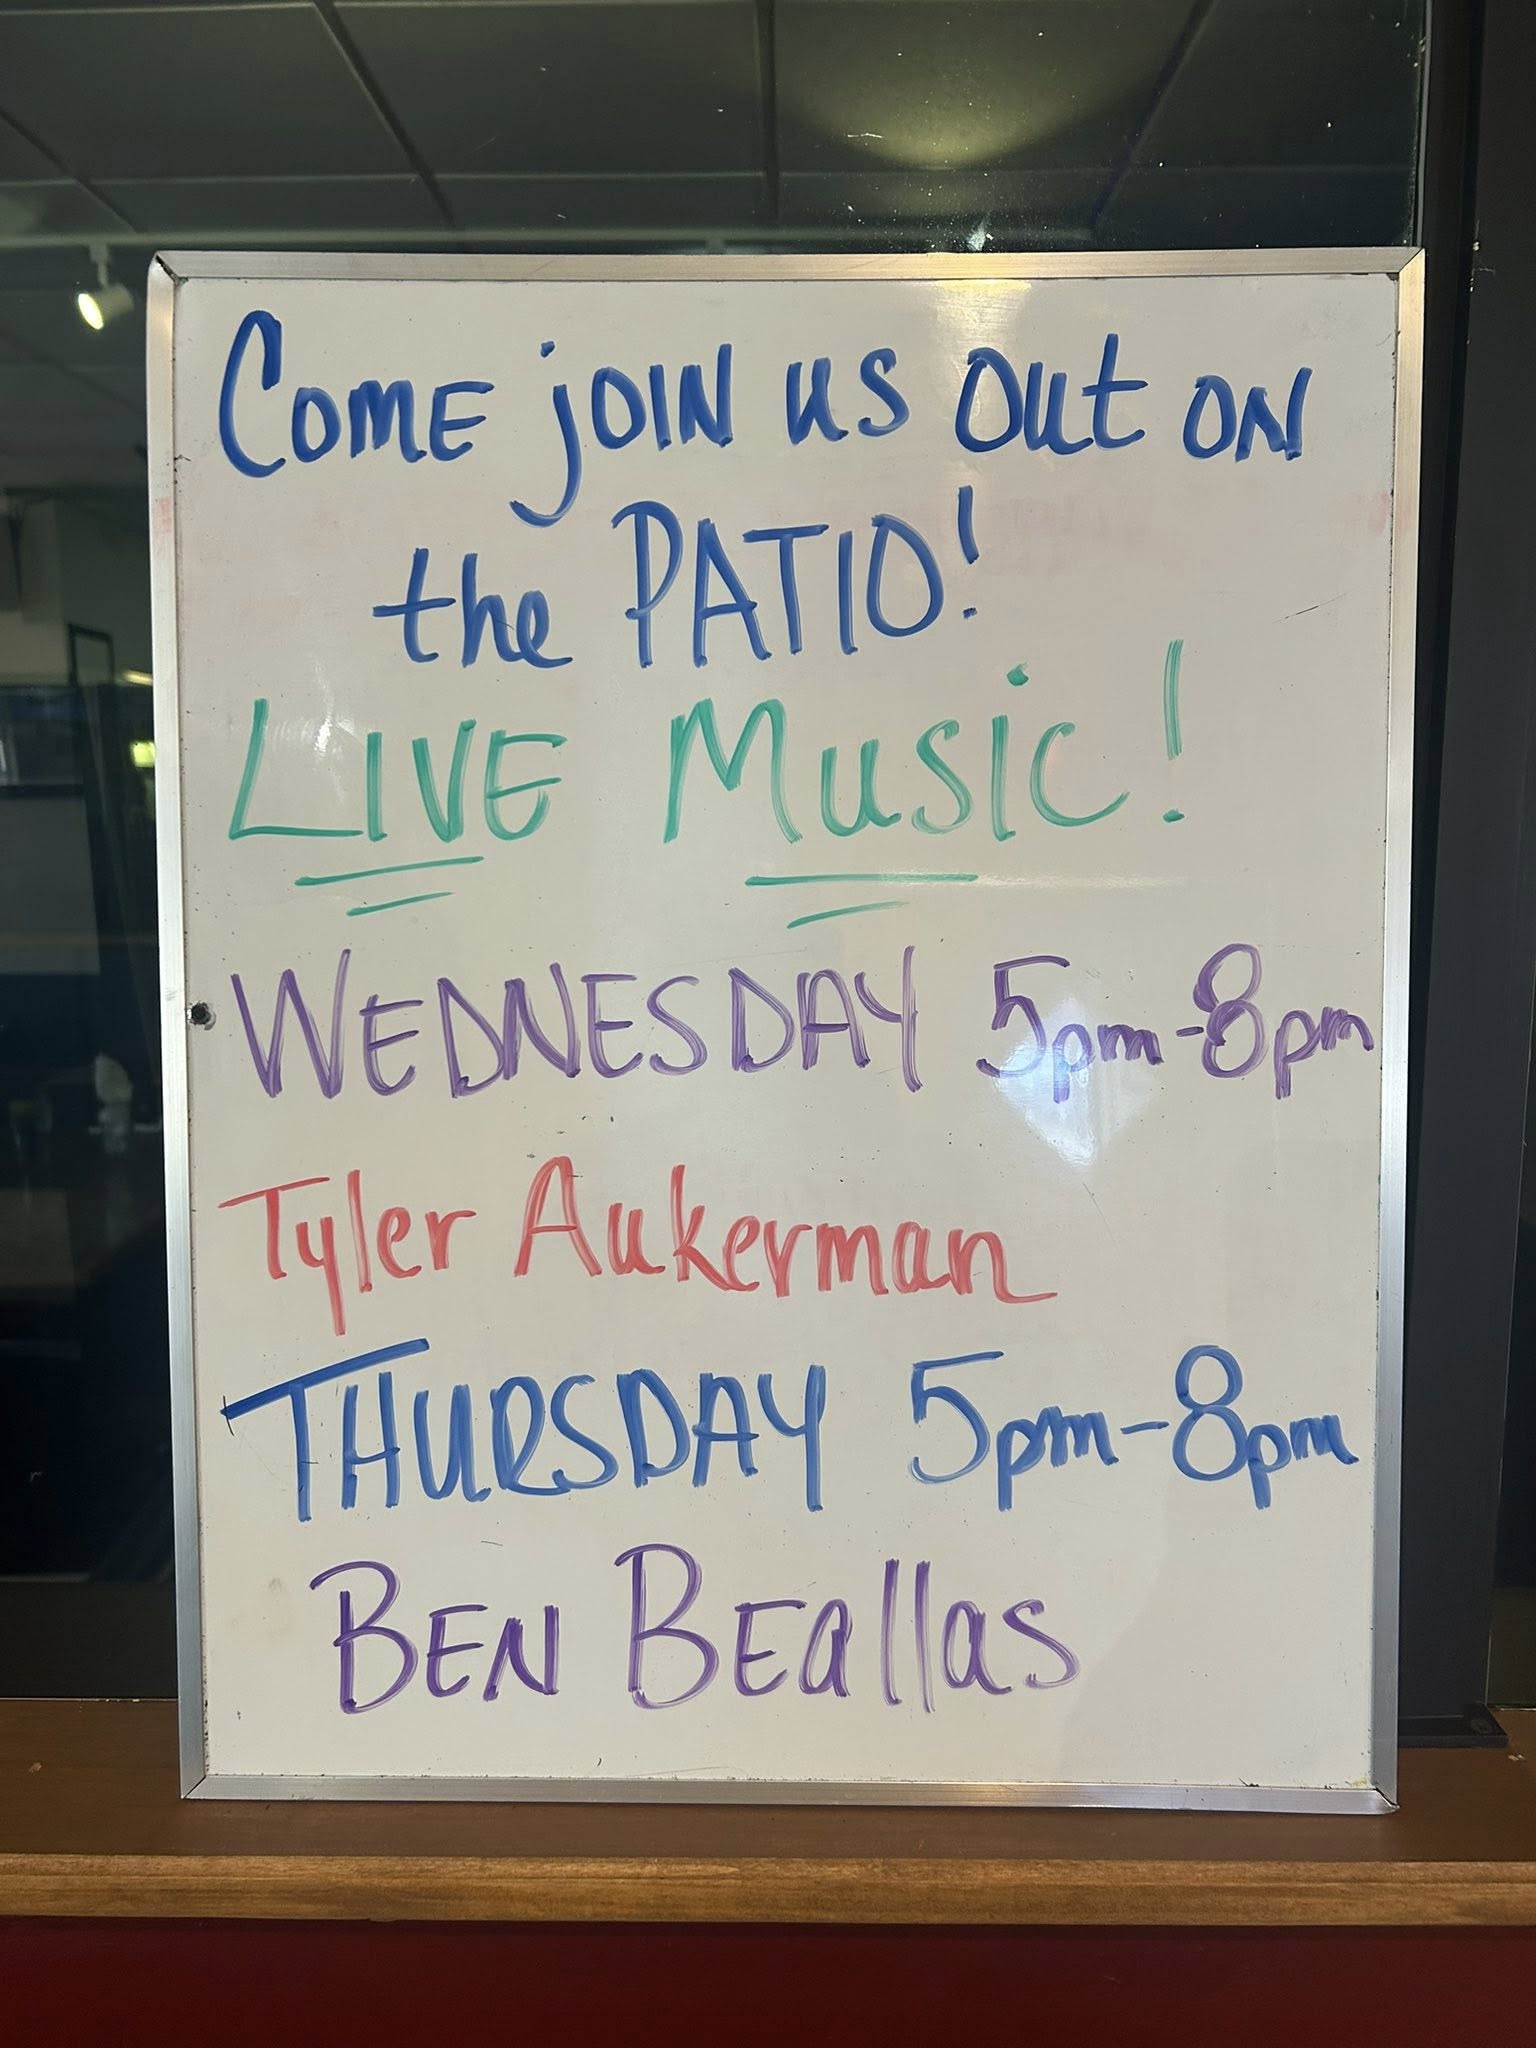 Come join us out on
the PATIO!
LIVE Music!
WEDNESDAY 5pm-8pm
Tyler Aukerman
THURSDAY 5pm-8pm
BEN BEallas